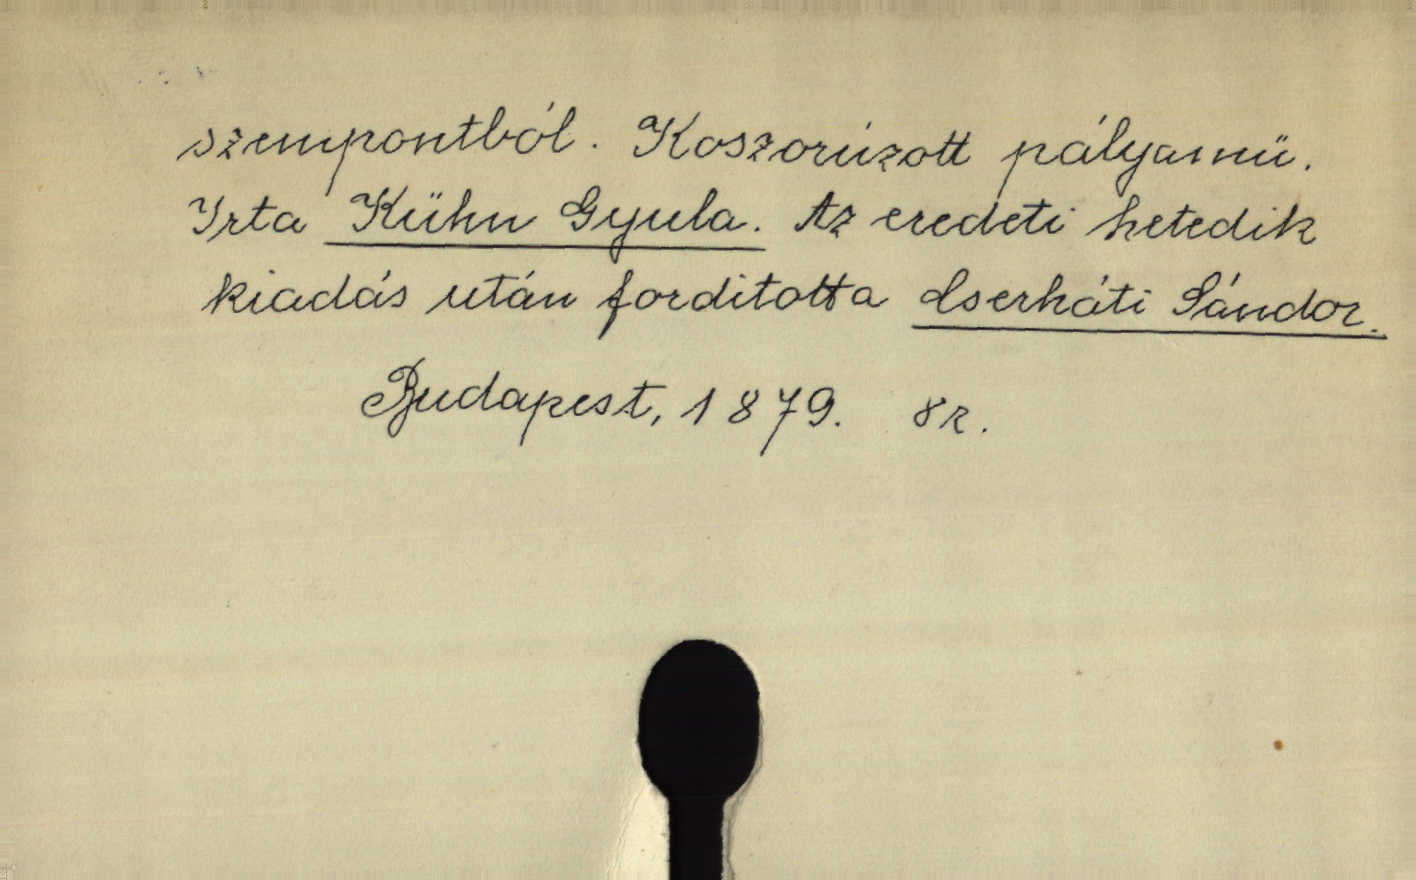 szempontból. Koszorúzott pályamü.
Irta Kühn Gyula. Az eredeti hetedik
kiadás után forditotta Cserháti Sándor.
Budapest, 1879. 8r.